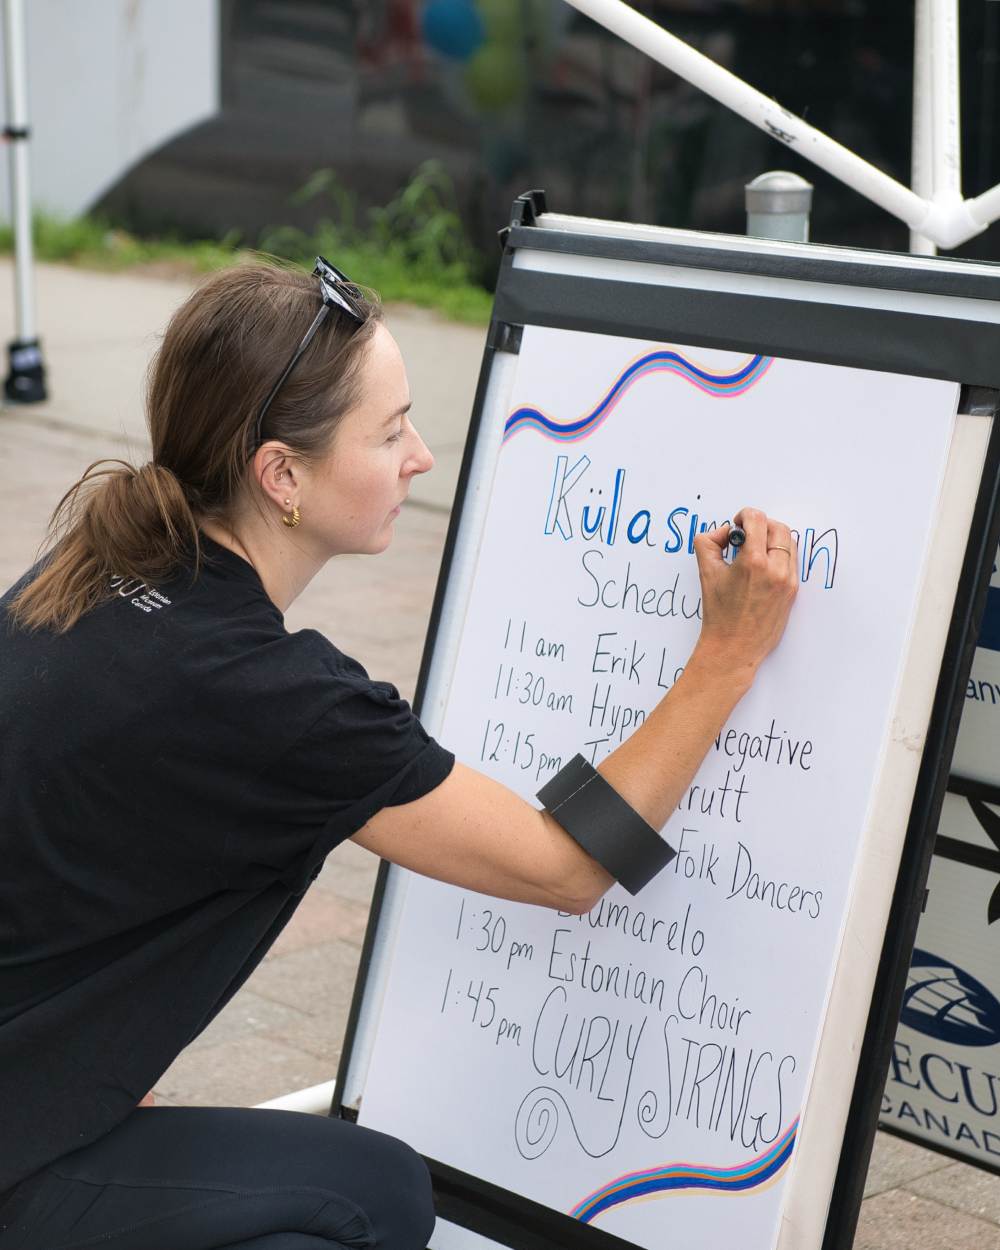 Külasim n
Schedu
11 am Erik L
11:30 am Hypn Negative
12:15 pm
rutt
Folk Dancers
amarelo
1:30 pm Estonian Choir
1:45 pm CURLY STRINGS
Estonian
Museum
Canada
ECU
CANAD